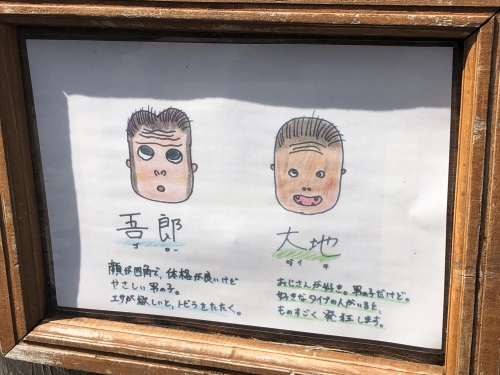 吾郎
ゴロー
顔が四角で、体格が良いけど
やさしい男の子。
エサが欲しいと、トビラをたたく。
大地
ダイチ
おじさんが好き。男の子だけど。
好きなタイプの人がいると、
ものすごく発狂します。